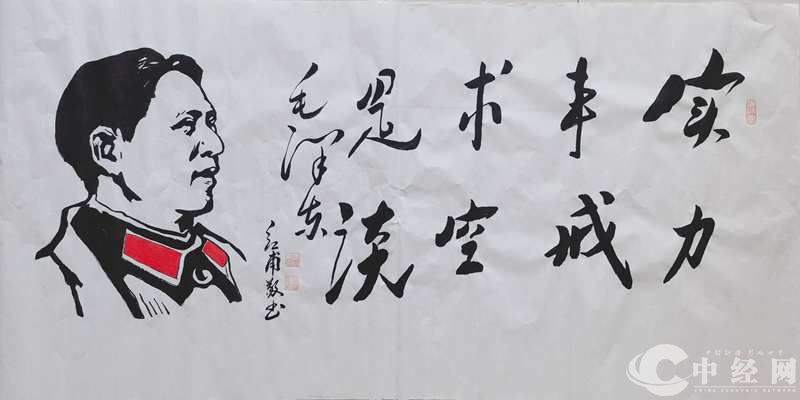 实事求是
力戒空谈
毛泽东
红甫敬书
中经网
CHINA ECONOMIC NETWORK